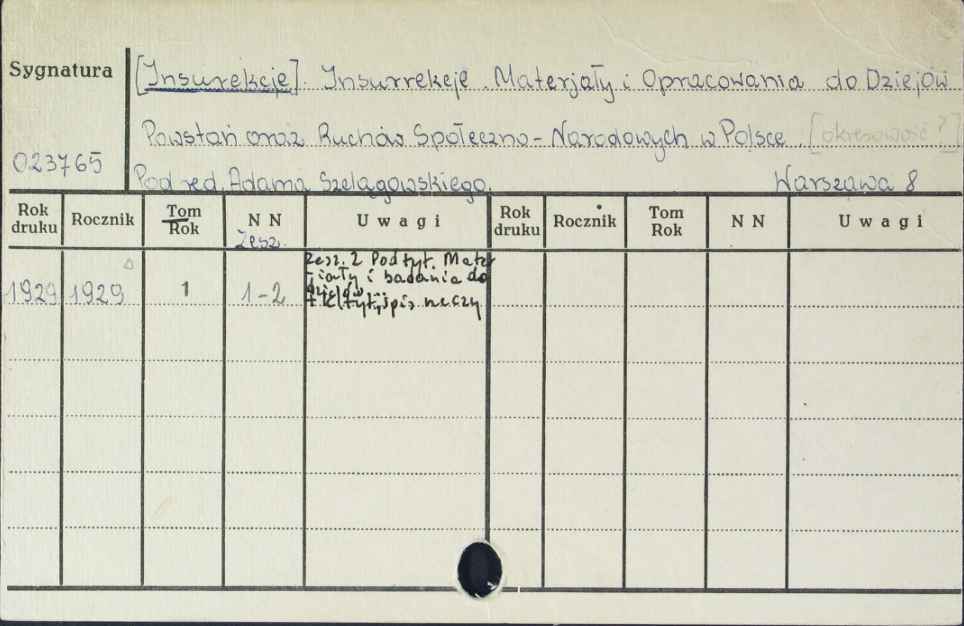 Sygnatura
[Insurekcje]. Insurrekcje. Materjały i Opracowania do Dziejów
Powstań oraz Ruchów Społeczno-Narodowych w Polsce [okresowość?]
023765
Pod red. Adama Szelągowskiego. Warszawa 8
Rok druku Rocznik Tom Rok N N Uwagi Rok druku Rocznik Tom Rok N N Uwagi
Zesz.
1929 1929 1 1-2
Zesz. 2 Podtyt. Mater
jały i badania do
spis rzeczy